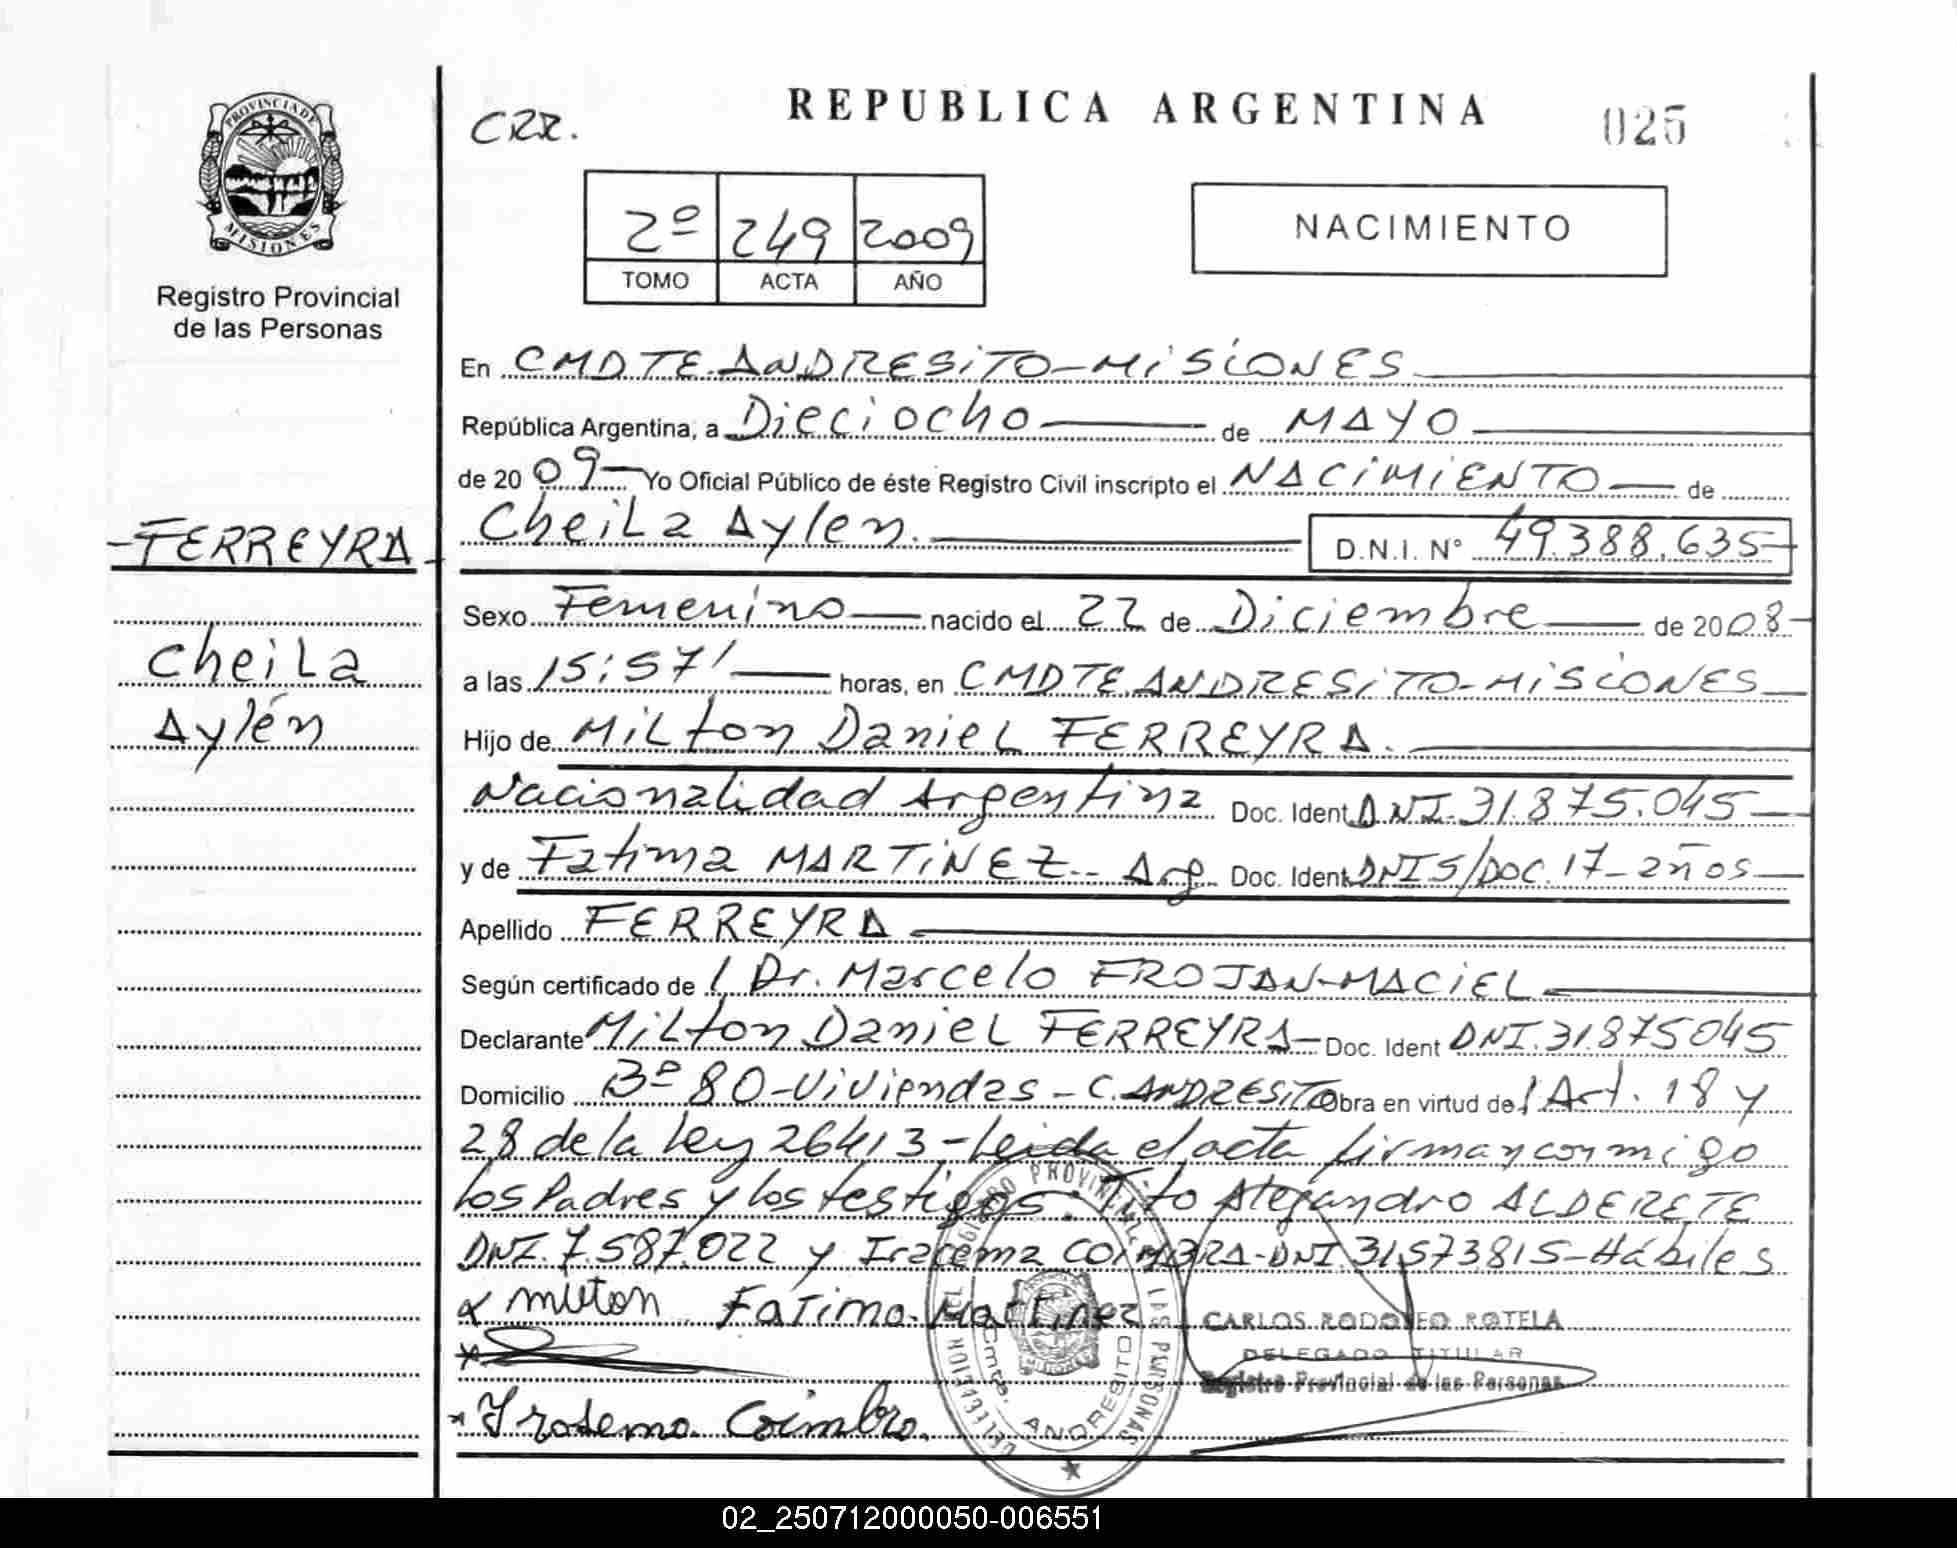 PROVINCIA DE
MISIONES
Registro Provincial
de las Personas
FERREYRA
Cheila
Aylén
CRR.
REPUBLICA ARGENTINA
025
2º 249 2009
TOMO ACTA AÑO
NACIMIENTO
En CMDTE ANDRESiTO-MiSiONES
República Argentina, a Dieciocho de MAYO
de 20 09 Yo Oficial Público de éste Registro Civil inscripto el NACiMiENTO de
Cheila Aylen. D.N.I. Nº 49.388.635
Sexo Femenino nacido el 22 de Diciembre de 2008
a las 15:57' horas, en CMDTE ANDRESiTO-MiSiONES
Hijo de Milton Daniel FERREYRA.
Nacionalidad Argentina Doc. Ident DNI.31.875.045
y de Fatima MARTiNEZ - Arg Doc. Ident DNI S/DOC.17-años
Apellido FERREYRA
Según certificado de l Dr. Marcelo FROJAN-MACiEL
Declarante Milton Daniel FERREYRA Doc. Ident DNI.31.875045
Domicilio Bº 80-Viviendas - C.ANDRESiTO Obra en virtud de l Art. 18 y
28 de la Ley 26413-Leida el acta firman conmigo
los Padres y los testigos: Tito Alejandro ALDERETE
DNI.7.587.022 y Iracema COiMBRA-DNI.31573815-Hábiles
x milton Fatima Martinez
CARLOS RODOLFO ROTELA
DELEGADO TITULAR
Registro Provincial de las Personas
x Iracema Coimbra.
DELEGACION DEL REGISTRO PROVINCIAL DE LAS PERSONAS
Cmte. ANDRESITO
02_250712000050-006551